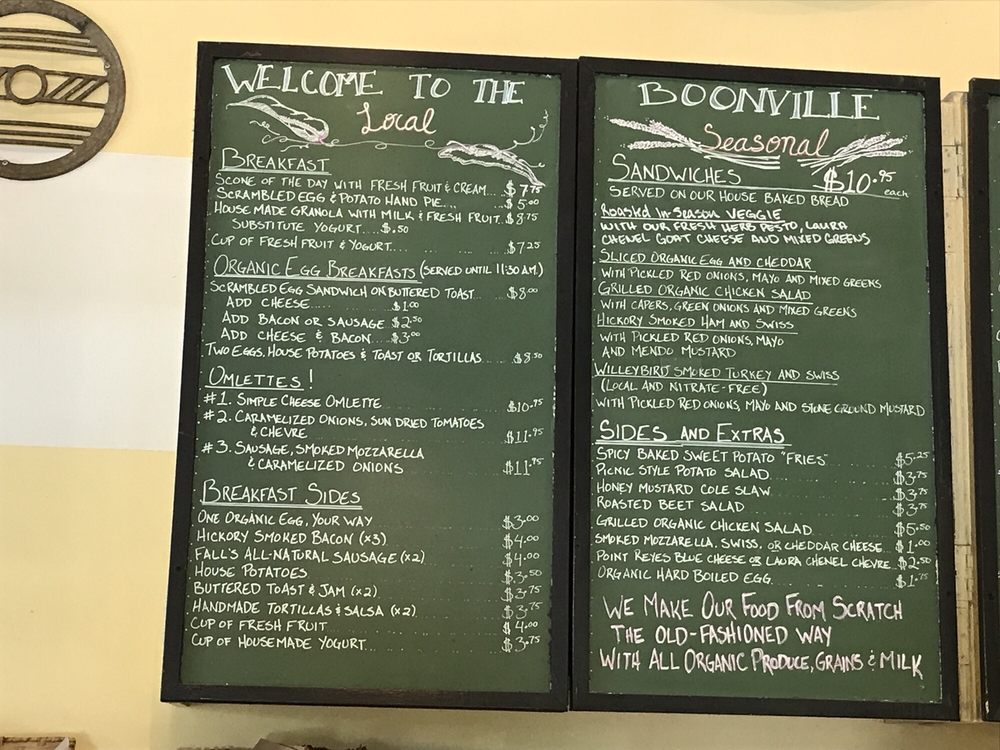 WELCOME TO THE
Local
BREAKFAST
SCONE OF THE DAY WITH FRESH FRUIT & CREAM... $7.75
SCRAMBLED EGG & POTATO HAND PIE... $5.00
HOUSE MADE GRANOLA WITH MILK & FRESH FRUIT. $8.75
SUBSTITUTE YOGURT....$.50
CUP OF FRESH FRUIT & YOGURT.... $7.25
ORGANIC EGG BREAKFASTS (SERVED UNTIL 11:30 A.M.)
SCRAMBLED EGG SANDWICH ON BUTTERED TOAST... $8.00
ADD CHEESE........$1.00
ADD BACON OR SAUSAGE $2.50
ADD CHEESE & BACON....$3.00
TWO EGGS, HOUSE POTATOES & TOAST OR TORTILLAS...... $8.50
OMLETTES!
#1. SIMPLE CHEESE OMLETTE $10.75
#2. CARAMELIZED ONIONS, SUN DRIED TOMATOES
& CHEVRE $11.95
#3. SAUSAGE, SMOKED MOZZARELLA
& CARAMELIZED ONIONS $11.95
BREAKFAST SIDES
ONE ORGANIC EGG, YOUR WAY $3.00
HICKORY SMOKED BACON (x3) $4.00
FALL'S ALL-NATURAL SAUSAGE (x2) $4.00
HOUSE POTATOES $3.50
BUTTERED TOAST & JAM (x2) $3.75
HANDMADE TORTILLAS & SALSA (x2) $3.75
CUP OF FRESH FRUIT $4.00
CUP OF HOUSEMADE YOGURT... $3.75
BOONVILLE
Seasonal
SANDWICHES $10.95 each
SERVED ON OUR HOUSE BAKED BREAD
Roasted In Season VEGGIE
WITH OUR FRESH HERB PESTO, LAURA
CHENEL GOAT CHEESE AND MIXED GREENS
SLICED ORGANIC EGG AND CHEDDAR
WITH PICKLED RED ONIONS, MAYO AND MIXED GREENS
GRILLED ORGANIC CHICKEN SALAD
WITH CAPERS, GREEN ONIONS AND MIXED GREENS
HICKORY SMOKED HAM AND SWISS
WITH PICKLED RED ONIONS, MAYO
AND MENDO MUSTARD
WILLEYBIRD SMOKED TURKEY AND SWISS
(LOCAL AND NITRATE-FREE)
WITH PICKLED RED ONIONS, MAYO AND STONE GROUND MUSTARD
SIDES AND EXTRAS
SPICY BAKED SWEET POTATO "FRIES" $5.25
PICNIC STYLE POTATO SALAD $3.75
HONEY MUSTARD COLE SLAW $3.75
ROASTED BEET SALAD $3.75
GRILLED ORGANIC CHICKEN SALAD $5.50
SMOKED MOZZARELLA, SWISS, OR CHEDDAR CHEESE $1.00
POINT REYES BLUE CHEESE OR LAURA CHENEL CHEVRE $2.50
ORGANIC HARD BOILED EGG $1.75
WE MAKE OUR FOOD FROM SCRATCH
THE OLD-FASHIONED WAY
WITH ALL ORGANIC PRODUCE, GRAINS & MILK